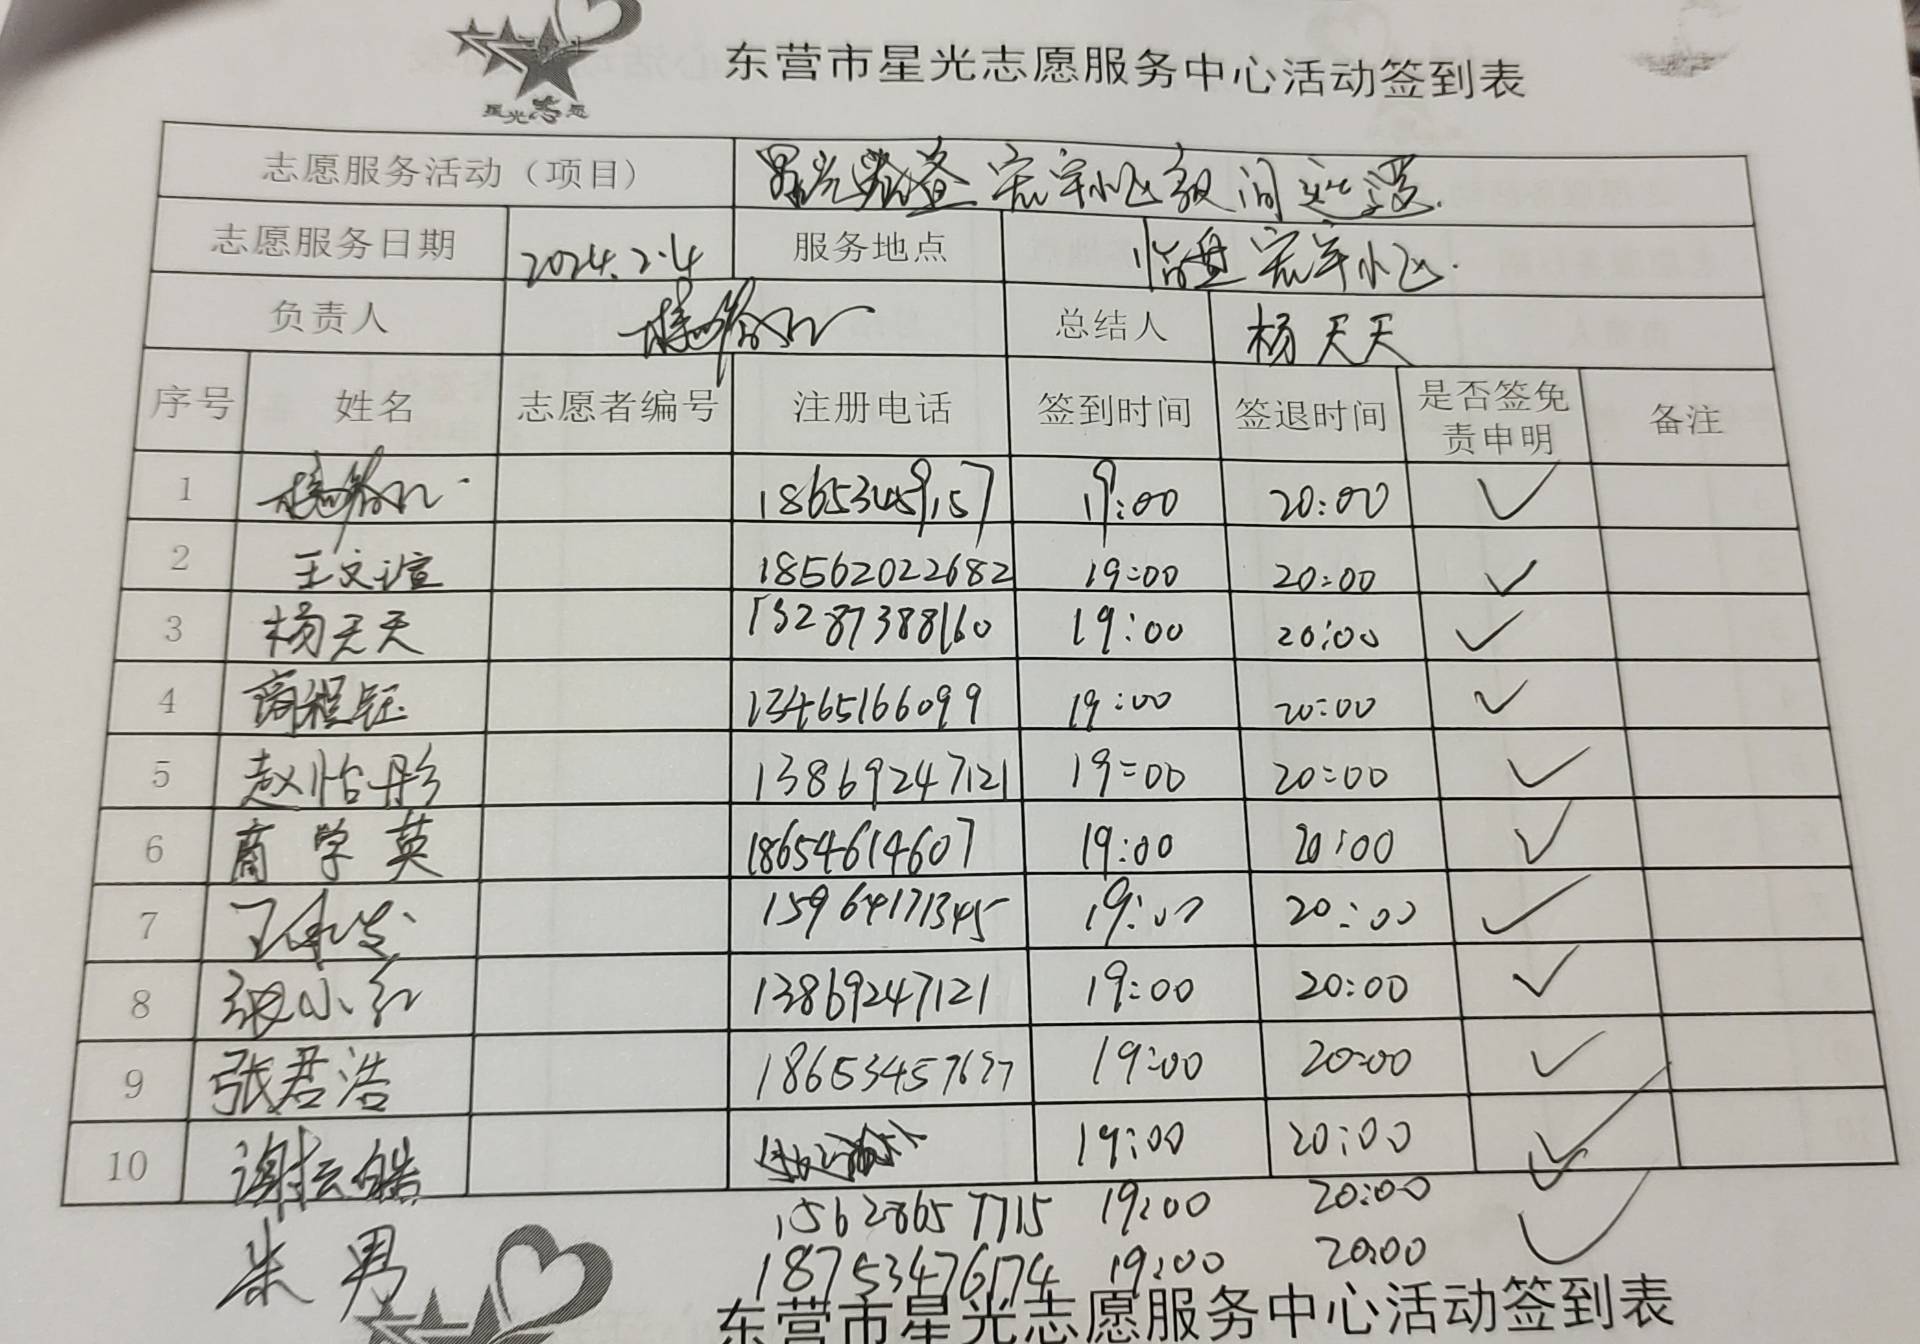 星光志愿
东营市星光志愿服务中心活动签到表
志愿服务活动（项目）
志愿服务日期 2024.2.4 服务地点 临盘宏宇小区.
负责人 总结人 杨天天
序号 姓名 志愿者编号 注册电话 签到时间 签退时间 是否签免责申明 备注
1 19:00 20:00 ✓
2 王文谊 18562022682 19:00 20:00 ✓
3 杨天天 13287388160 19:00 20:00 ✓
4 商程钰 13465166099 19:00 20:00 ✓
5 赵怡彤 13869247121 19:00 20:00 ✓
6 商学英 18654614607 19:00 20:00 ✓
7 15964171345 19:00 20:00 ✓
8 张小红 13869247121 19:00 20:00 ✓
9 张君浩 19:00 20:00 ✓
10 谢云皓 19:00 20:00 ✓
15628657715 19:00 20:00
朱男 18753476174 19:00 20:00 ✓
东营市星光志愿服务中心活动签到表